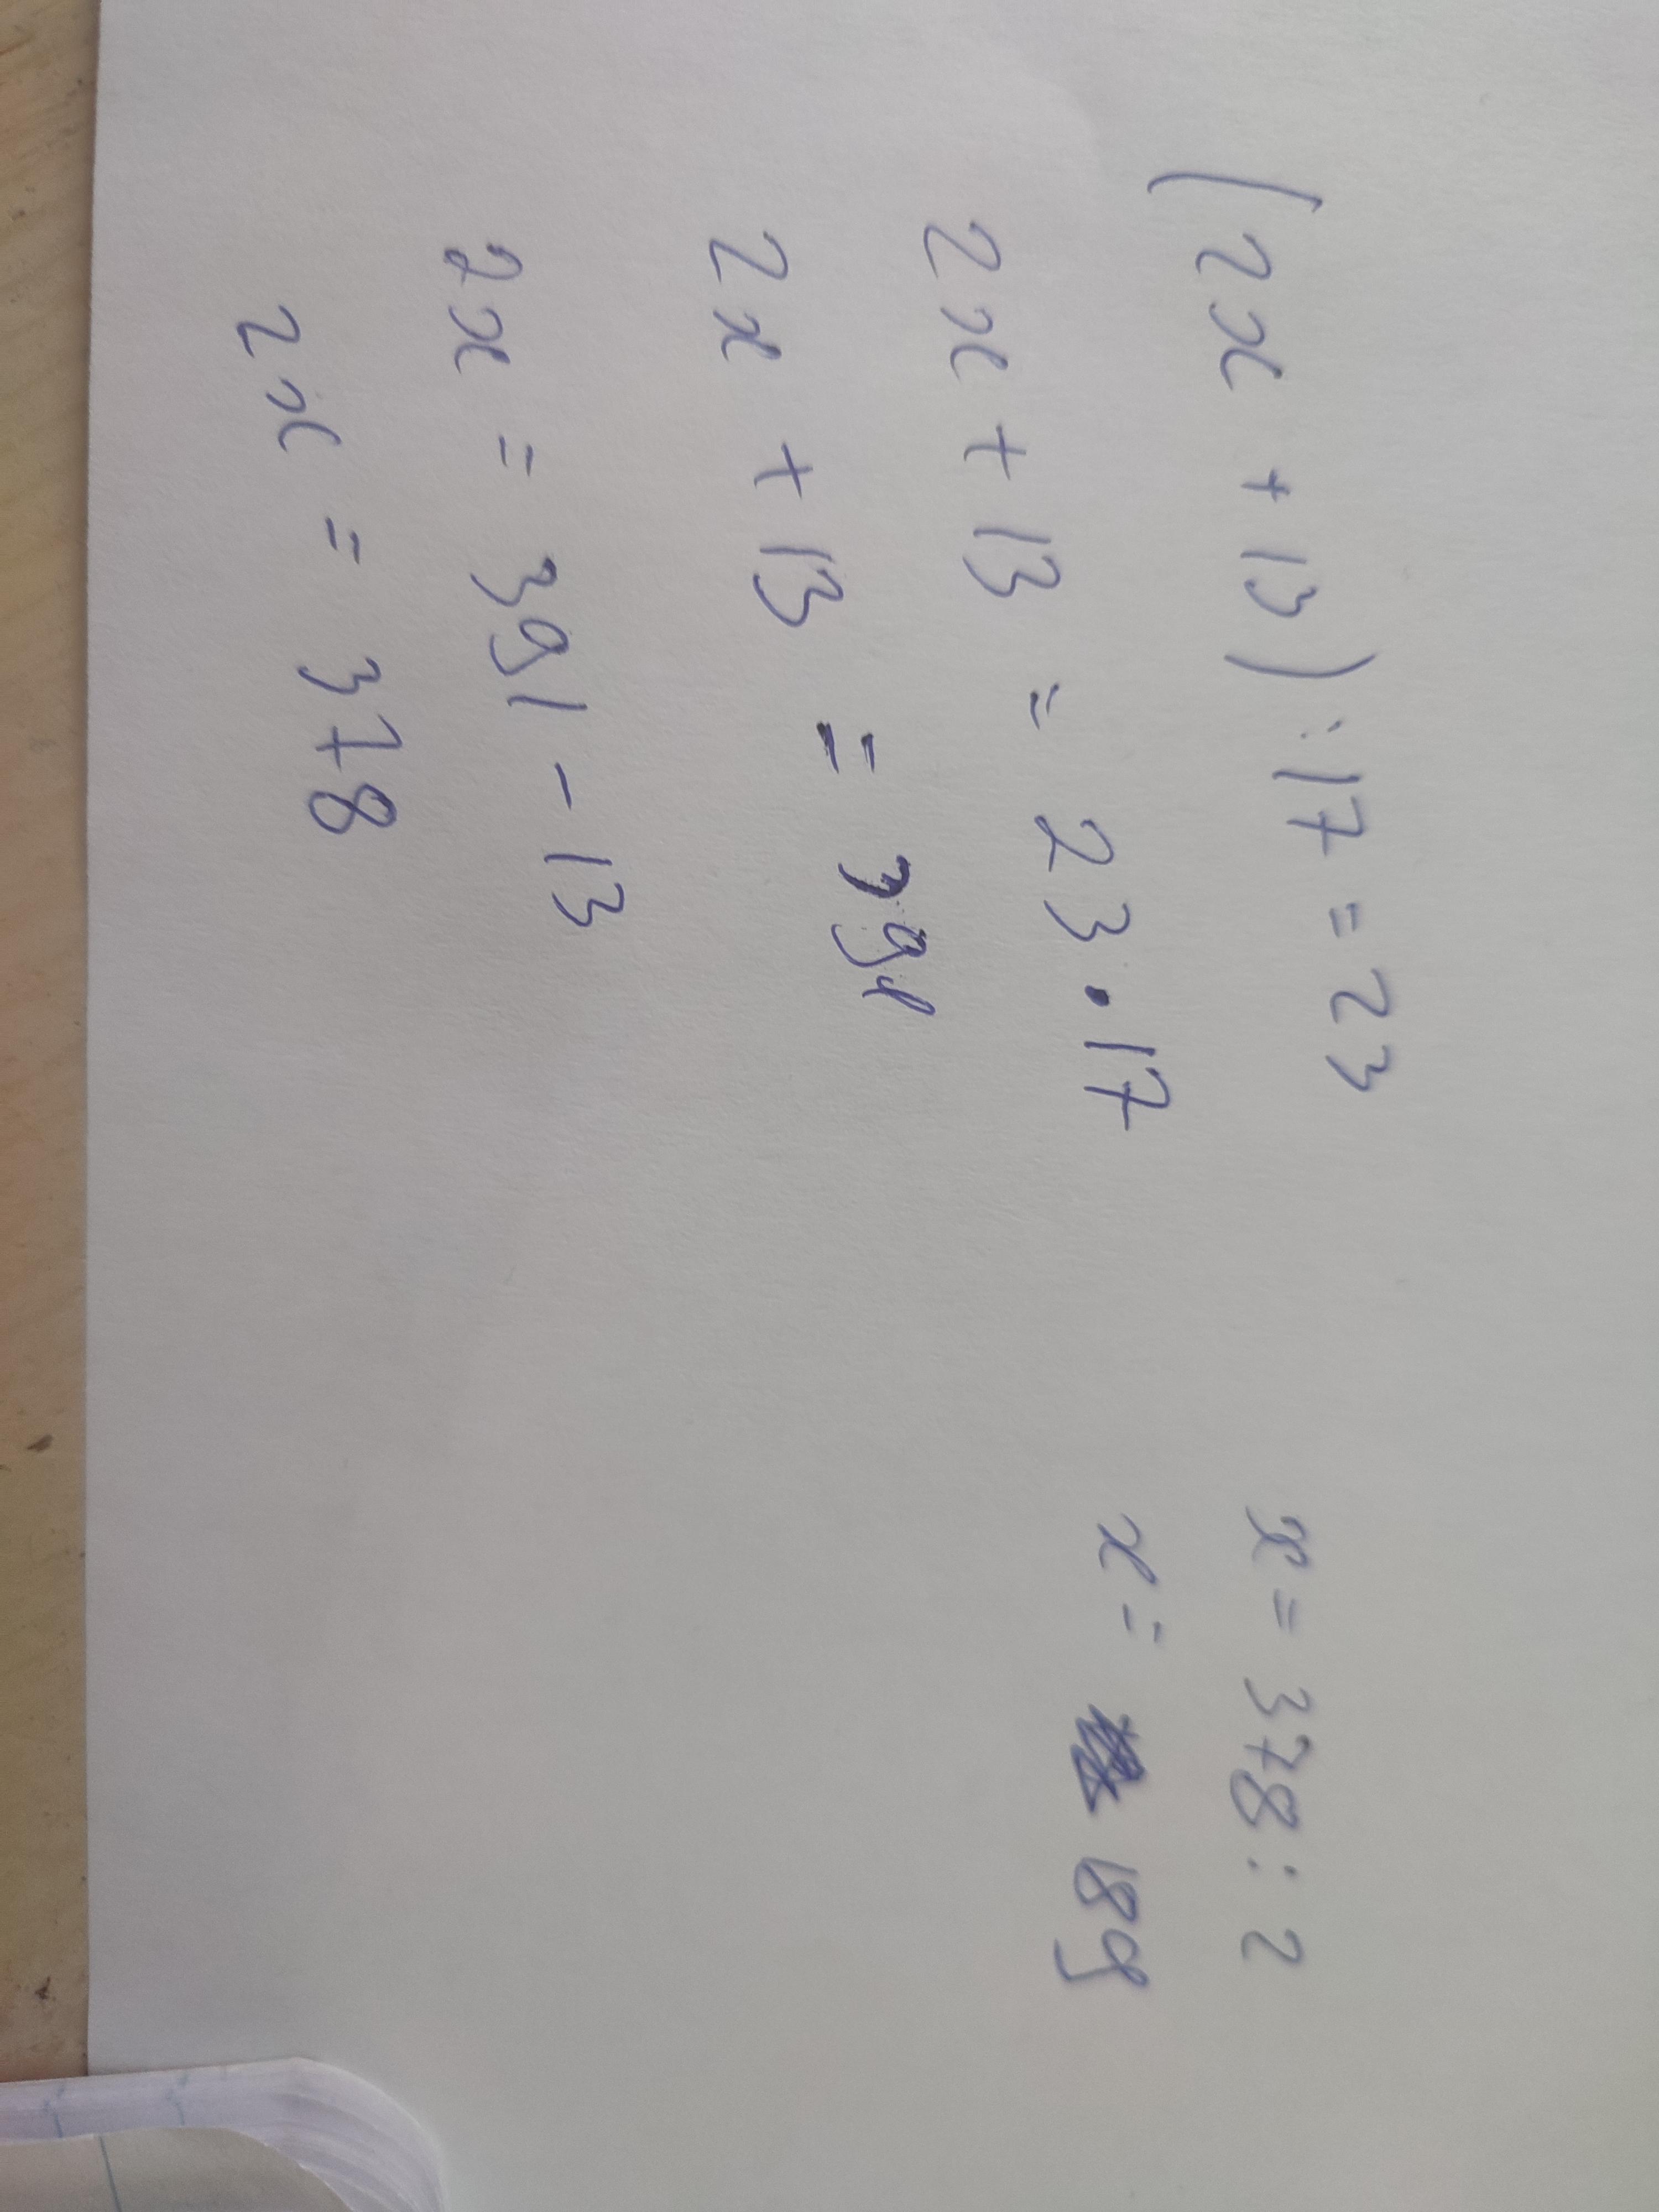 (2x + 13) : 17 = 23
2x + 13 = 23 · 17
2x + 13 = 391
2x = 391 - 13
2x = 378
x = 378 : 2
x = 189